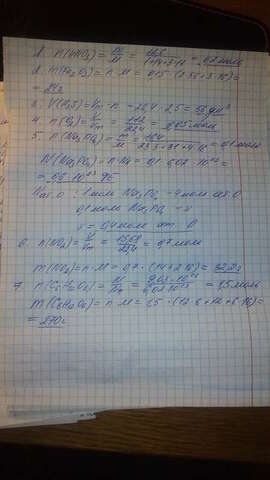 1. n(HNO₃) = m/M = 12,6/(1+14+3·16) = 0,2 моль
2. m(Fe₂O₃) = n·M = 0,15·(2·56+3·16) =
= 24г
3. V(H₂S) = Vm·n = 22,4·2,5 = 56 дм³
4. n(O₂) = V/Vm = /22,4 = моль
5. n(Na₃PO₄) = m/M = 16,4/23·3+31+4·16 = 0,1 моль
N(Na₃PO₄) = n·Na = 0,1·6,02·10²³ =
=
: 1 моль Na₃PO₄ - 4 моль ат. O
0,1 моль Na₃PO₄ - x
x = 0,4 моль ат O
6. n(NO₂) = V/Vm = 15,68/22,4 = 0,7 моль
m(NO₂) = n·M = 0,7·(14+2·16) = 32,2г
7. n(C₆H₁₂O₆) = N/Na = 9,03·10²³/6,02·10²³ = 1,5 моль
m(C₆H₁₂O₆) = n·M = 1,5·(12·6+12+6·16) =
= 270г